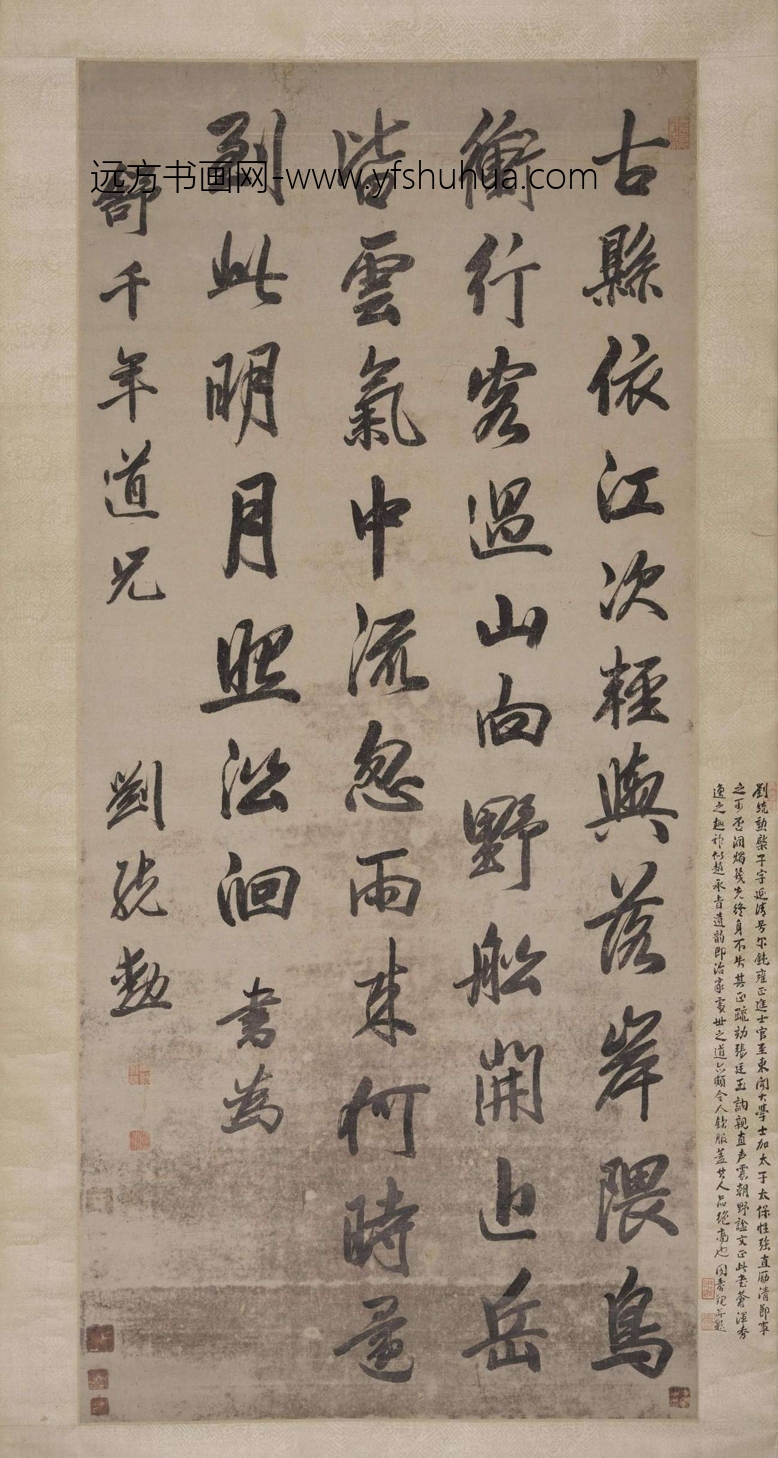 远方书画网-www.yfshuhua.com
古縣依江次輕輿落岸隈鳥
衝行客過山向野船開近岳
皆雲氣中流忽雨來何時還
到此明月照沿洄 書為
舒千年道兄 劉統勳
劉統勳棨子字延清号尔鈍雍正進士官至東閣大學士加太子太保性強直厲清節事
之可否洞燭幾先終身不失其正疏劾張廷玉訥親直声震朝野諡文正此書蒼渾秀
逸之趣神似趙承旨遺韵即治家處世之道亦頗令人欽服蓋其人品绝高也